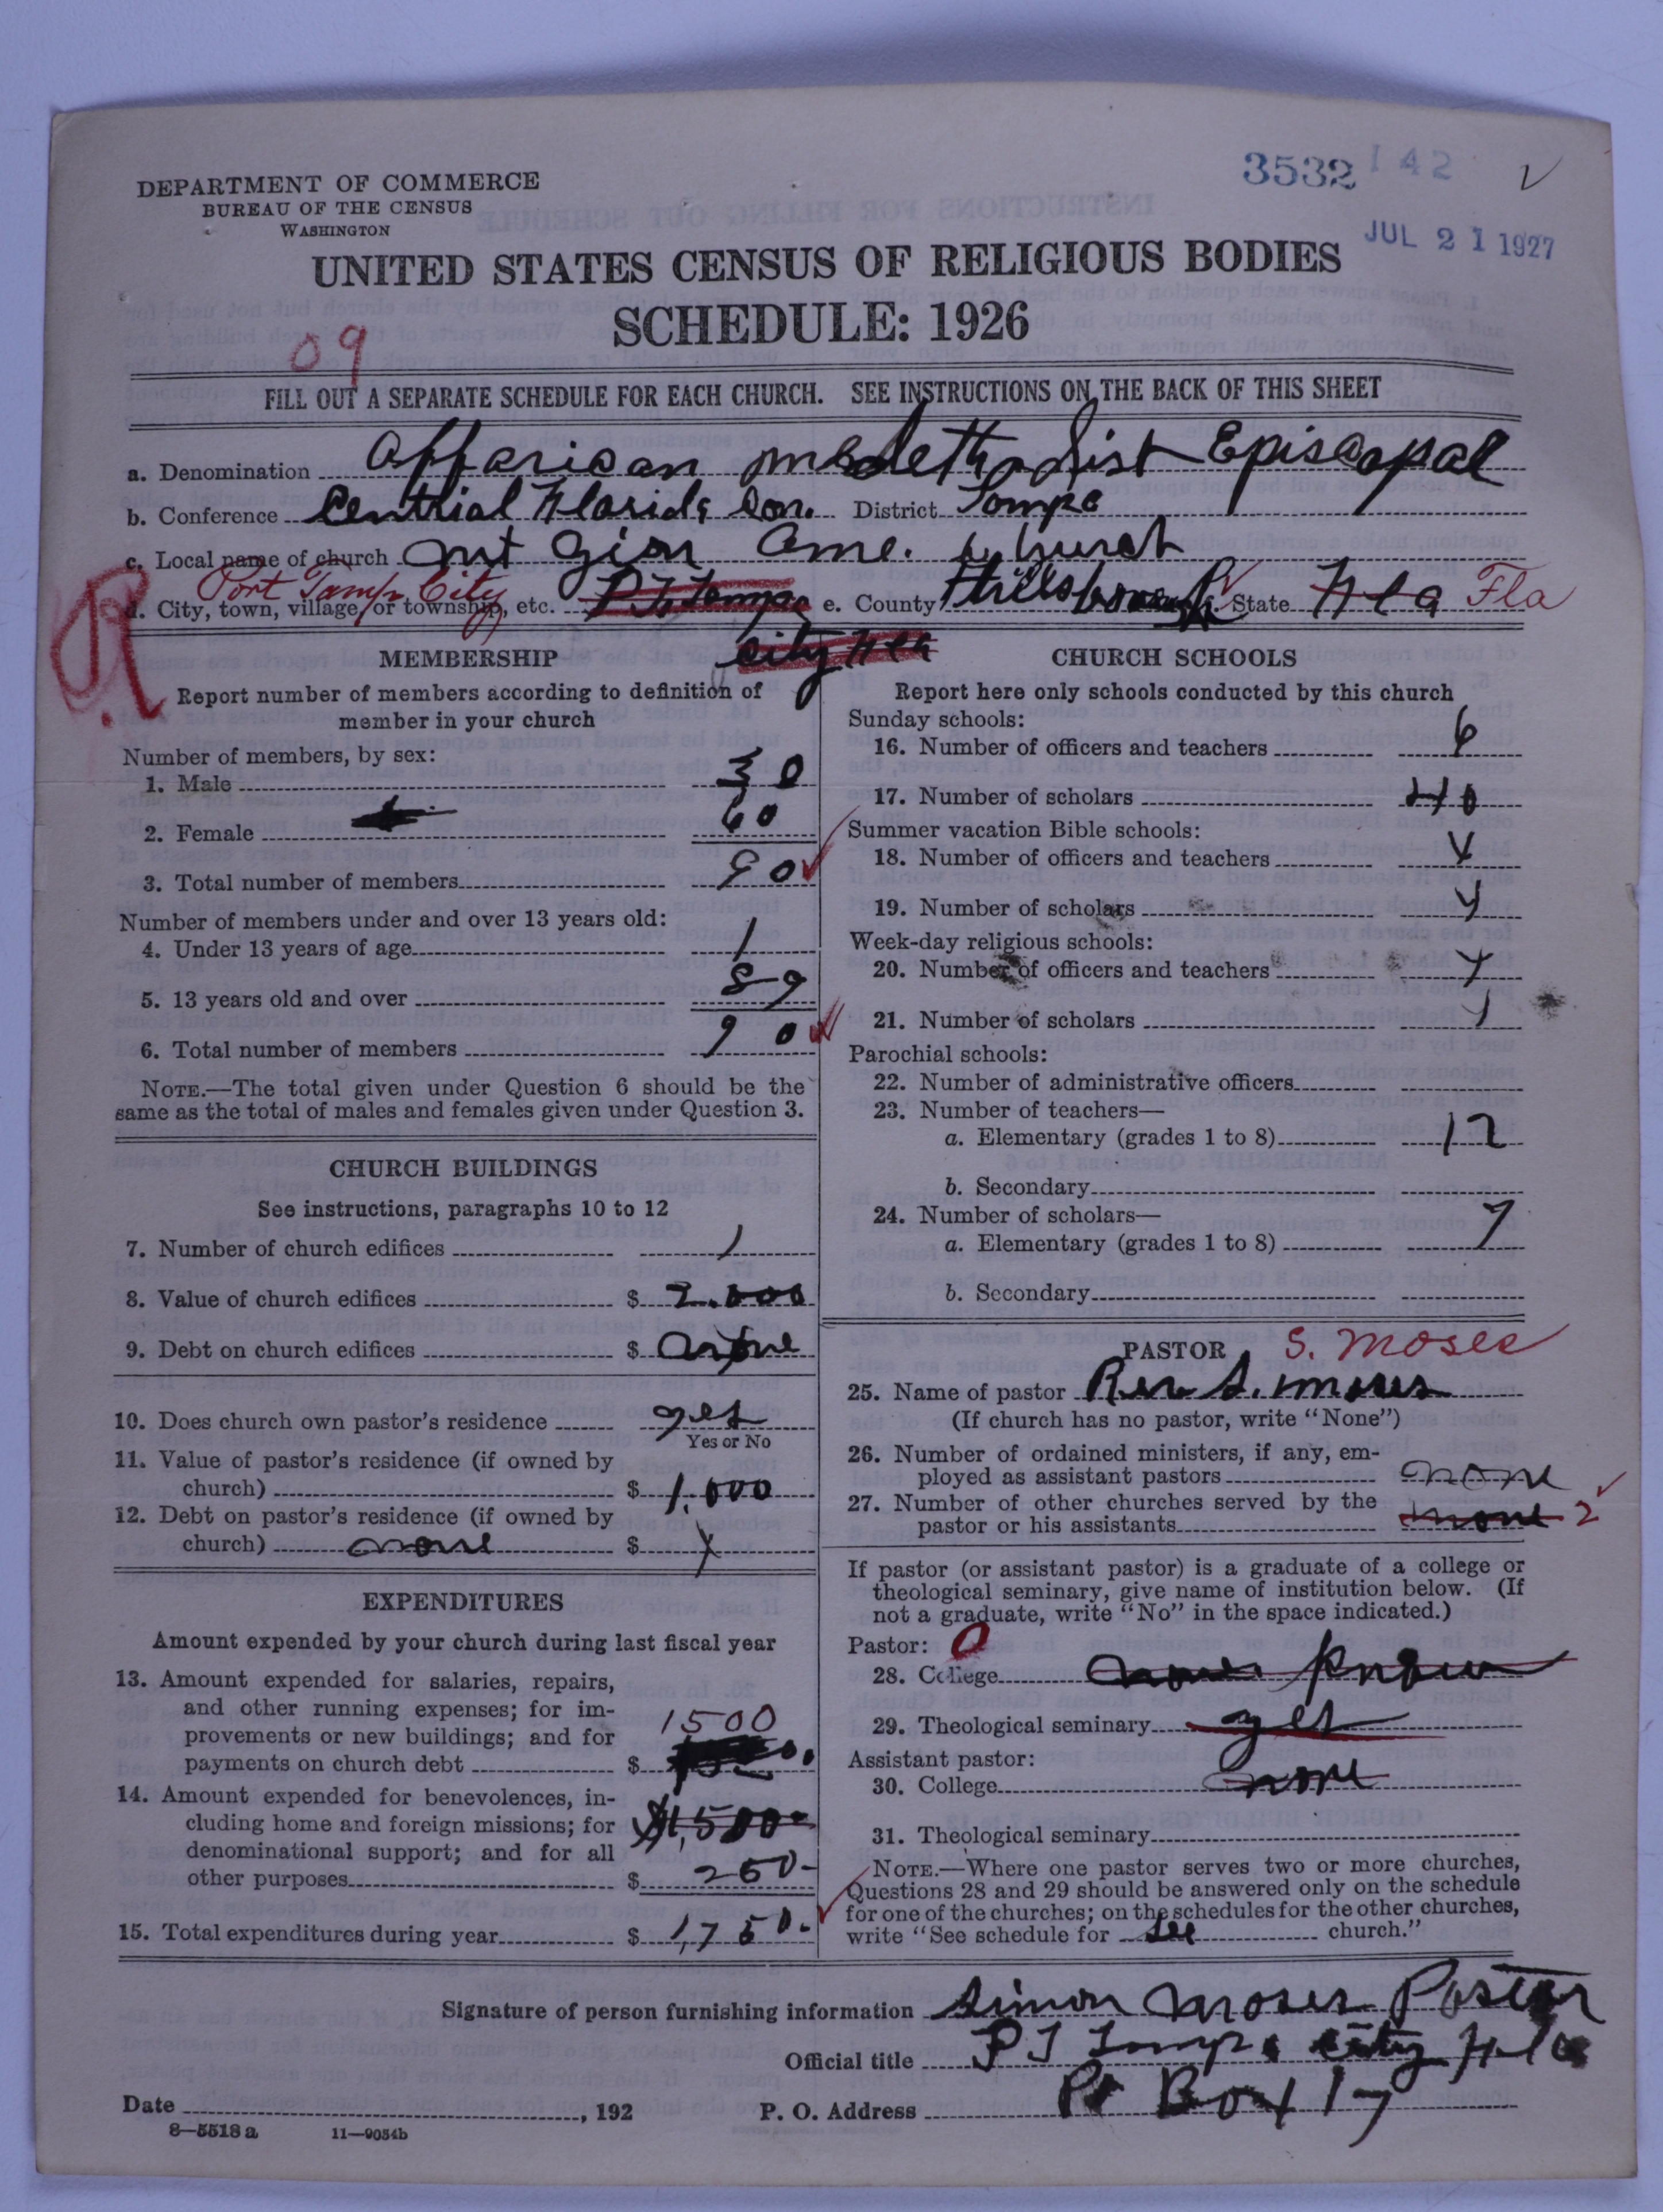 3532 142
DEPARTMENT OF COMMERCE
BUREAU OF THE CENSUS
WASHINGTON
JUL 21 1927
UNITED STATES CENSUS OF RELIGIOUS BODIES
SCHEDULE: 1926
09
FILL OUT A SEPARATE SCHEDULE FOR EACH CHURCH. SEE INSTRUCTIONS ON THE BACK OF THIS SHEET
a. Denomination Episcopal
b. Conference Centrial Florida Con. District Tampa
c. Local name of church mt Zion Ame. Church
Port Tampa City
d. City, town, village, or township, etc. Pt Tampa e. County Hillsborough State Fla Fla
City Fla
R
MEMBERSHIP
Report number of members according to definition of
member in your church
Number of members, by sex:
1. Male 30
2. Female 60
3. Total number of members 90
Number of members under and over 13 years old:
4. Under 13 years of age 1
5. 13 years old and over 89
6. Total number of members 90
NOTE.—The total given under Question 6 should be the
same as the total of males and females given under Question 3.
CHURCH BUILDINGS
See instructions, paragraphs 10 to 12
7. Number of church edifices 1
8. Value of church edifices $ 2.000
9. Debt on church edifices $
10. Does church own pastor's residence yes
Yes or No
11. Value of pastor's residence (if owned by
church) $ 1.000
12. Debt on pastor's residence (if owned by
church) none $ X
EXPENDITURES
Amount expended by your church during last fiscal year
13. Amount expended for salaries, repairs,
and other running expenses; for im-
provements or new buildings; and for 1500
payments on church debt $
14. Amount expended for benevolences, in-
cluding home and foreign missions; for $1,500-
denominational support; and for all
other purposes $ 250-
15. Total expenditures during year $ 1,750-
CHURCH SCHOOLS
Report here only schools conducted by this church
Sunday schools:
16. Number of officers and teachers 6
17. Number of scholars 40
Summer vacation Bible schools:
18. Number of officers and teachers
19. Number of scholars
Week-day religious schools:
20. Number of officers and teachers
21. Number of scholars
Parochial schools:
22. Number of administrative officers
23. Number of teachers—
a. Elementary (grades 1 to 8) 12
b. Secondary
24. Number of scholars—
a. Elementary (grades 1 to 8) 7
b. Secondary
PASTOR S. Moses
25. Name of pastor Rev S. moses
(If church has no pastor, write "None")
26. Number of ordained ministers, if any, em-
ployed as assistant pastors none
27. Number of other churches served by the
pastor or his assistants none 2
If pastor (or assistant pastor) is a graduate of a college or
theological seminary, give name of institution below. (If
not a graduate, write "No" in the space indicated.)
Pastor: 0
28. College
29. Theological seminary yes
Assistant pastor:
30. College none
31. Theological seminary
NOTE.—Where one pastor serves two or more churches,
Questions 28 and 29 should be answered only on the schedule
for one of the churches; on the schedules for the other churches,
write "See schedule for see church."
Signature of person furnishing information Simon Moses Pastor
Official title PT Tampa City Fla
Date , 192 P. O. Address Po Box 17
8—5518 a 11—9054b